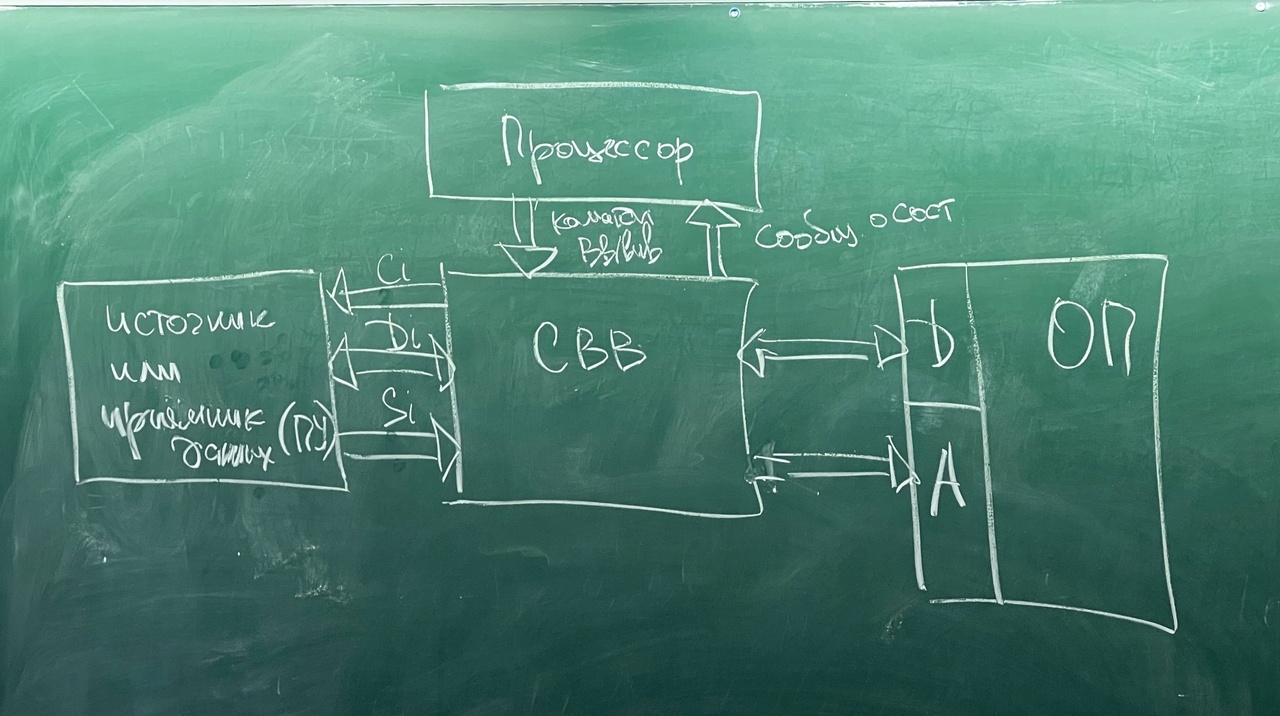 Процессор
команды
Вв/выв
сообщ. о сост
Ci
Di
Si
источник
или
приёмник
данных (ПУ)
СВВ
D
ОП
A